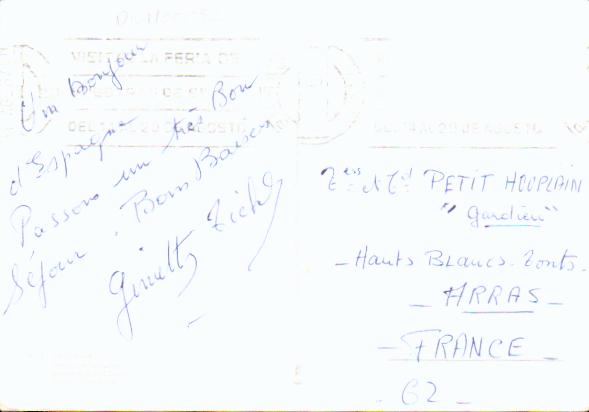 VISITE LA FERIA DE
DEL 14 AL 20 DE AGOSTO
DEL 14 AL 20 DE AGOSTO
Un Bonjour
d'Espagne
Passons un très Bon
Séjour. Bons Baisers
Ginette
PETIT HOUPLAIN
"Gardien"
- Hauts Blancs-Monts.
- ARRAS -
- FRANCE -
- 62 -